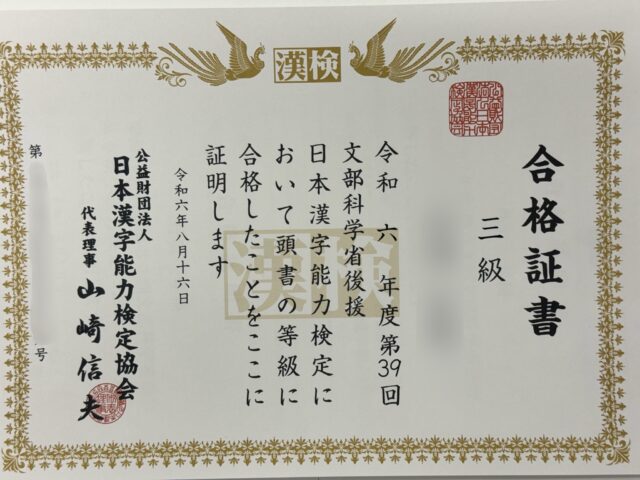 漢検
合格証書
三級
令和 六 年度第39回
文部科学省後援
日本漢字能力検定に
おいて頭書の等級に
合格したことをここに
証明します
令和六年八月十六日
公益財団法人
日本漢字能力検定協会
代表理事 山崎信夫
第
号
漢検